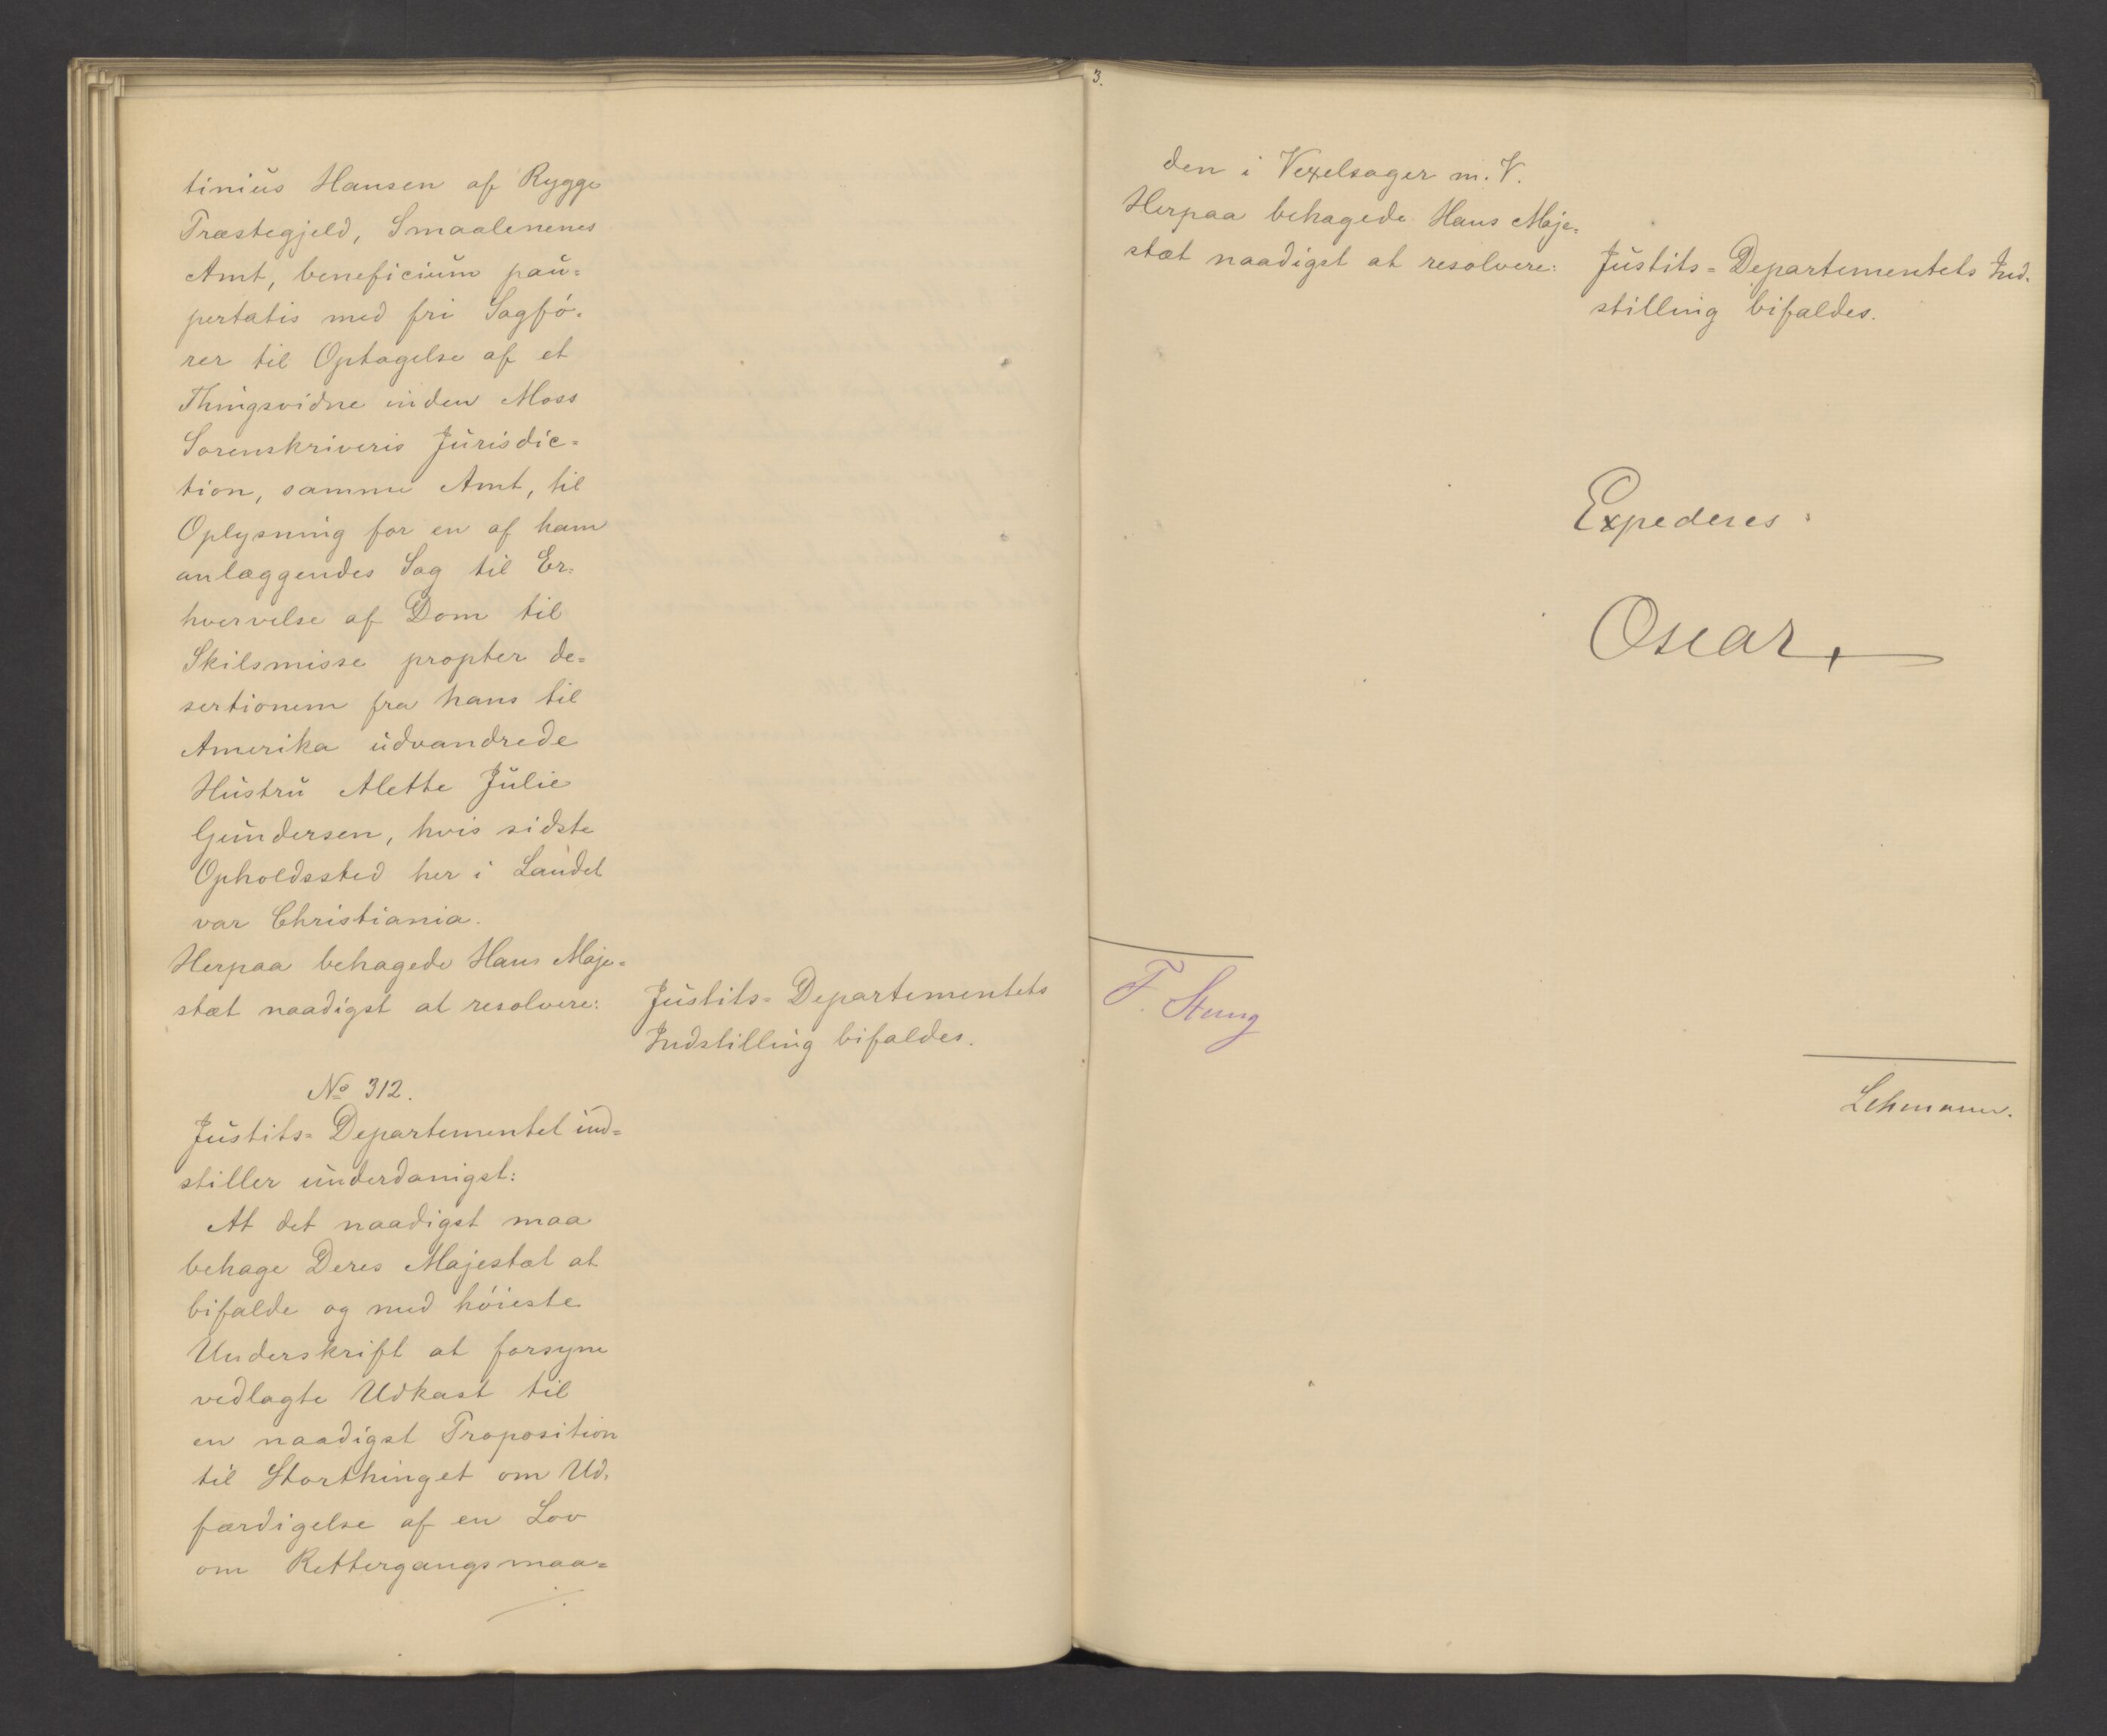 tinius Hansen af Rygge
Præstegjeld, Smaalenenes
Amt, beneficium pau=
pertatis med fri Sagfö=
rer til Optagelse af et
Thingsvidne inden Moss
Sorenskriveris Jurisdic=
tion, samme Amt, til
Oplysning for en af ham
anlæggendes Sag til Er=
hvervelse af Dom til
Skilsmisse propter de=
sertionem fra hans til
Amerika udvandrede
Hustru Alette Julie
Gundersen, hvis sidste
Opholdssted her i Landet
var Christiania.
Herpaa behagede Hans Maje=
stæt naadigst at resolvere:
Justits=Departementets
Indstilling bifaldes.
No 312.
Justits=Departementet ind=
stiller underdanigst:
At det naadigst maa
behage Deres Majestæt at
bifalde og med höieste
Underskrift at forsyne
vedlagte Udkast til
en naadigst Proposition
til Storthinget om Ud=
færdigelse af en Lov
om Rettergangsmaa=
./.
3.
den i Vexelsager m. V.
Herpaa behagede Hans Maje=
stæt naadigst at resolvere:
Justits=Departementets Ind=
stilling bifaldes.
Expederes:
Oscar
F. Stang
Lehmann.